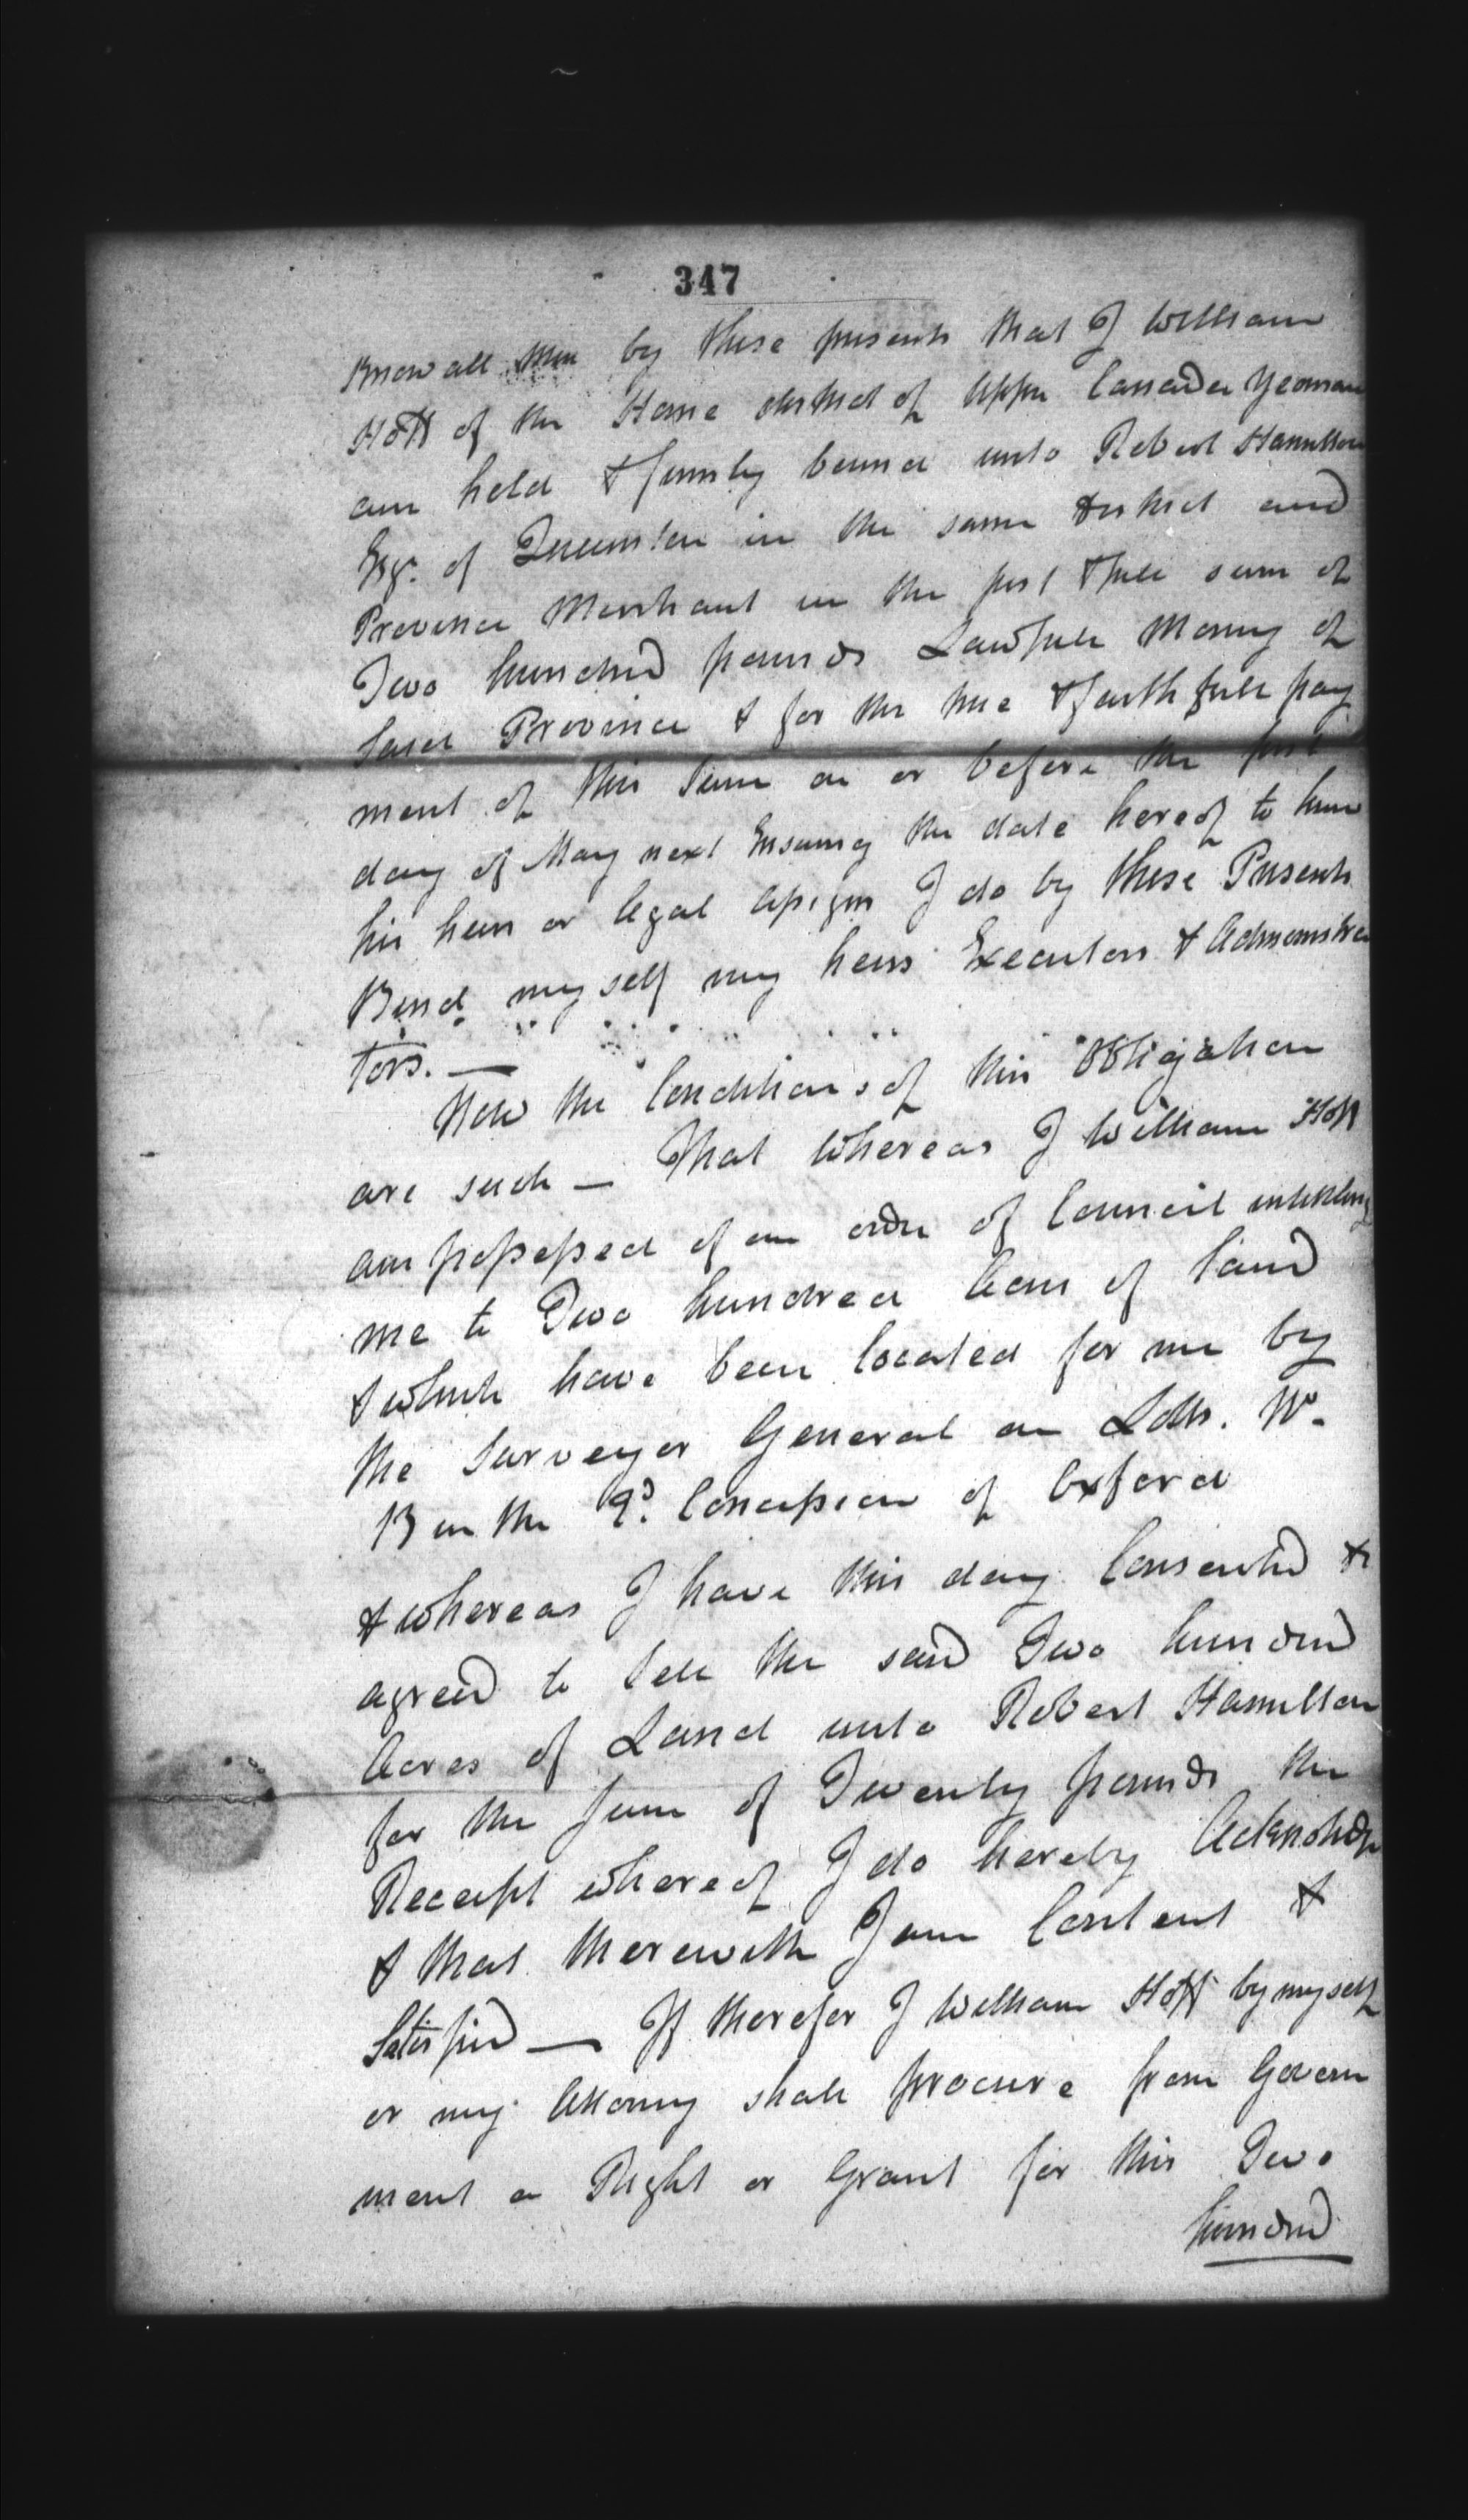 347
Know all Men by these presents that I William
Hott of the Home district of Upper Canada Yeoman
am held & firmly bound unto Robert Hamilton
Esqr. of Queenston in the same district and
Province Merchant in the just & full sum of
Two hundred pounds Lawfull Money of
said Province & for the true & faithfull pay
ment of this Sum on or before the first
day of May next Ensuing the date hereof to him
his heirs or legal assigns I do by these Presents
Bind myself my heirs Executors & Administra
tors. —
Now the Conditions of this Obligation
are such — That Whereas I William Hott
am possessed of an order of Council intitling
me to Two hundred Acres of Land
& which have been located for me by
the Surveyor General on Lotts. No.
13 in the 2d. Concession of Oxford
& whereas I have this day Consented &
agreed to Sell the said Two hundred
Acres of Land unto Robert Hamilton
for the Sum of Twenty pounds the
Receipt whereof I do hereby Acknowledge
& that therewith I am Content &
Satisfied — If therefor I William Hott by myself
or my Attorney shall procure from Govern
ment a Right or Grant for this Two
hundred